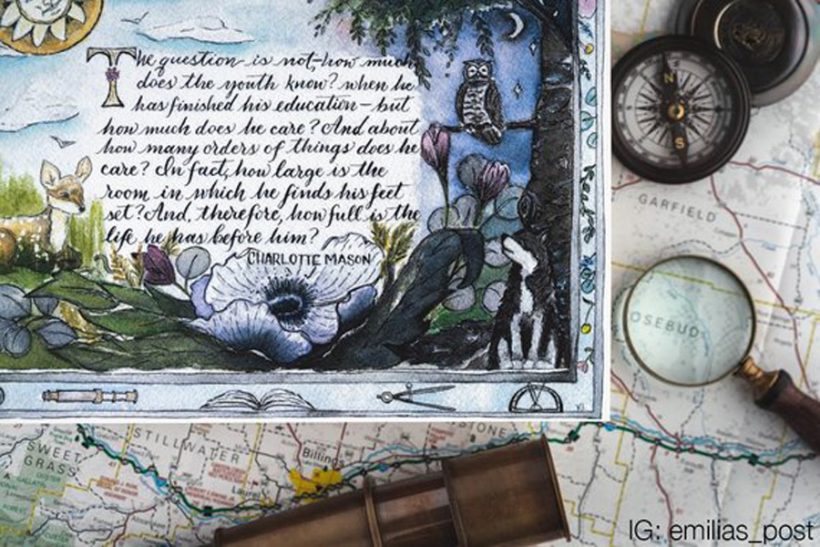 The question is not, how much
does the youth know? when he
has finished his education – but
how much does he care? And about
how many orders of things does he
care? In fact, how large is the
room in which he finds his feet
set? And, therefore, how full is the
life he has before him?
CHARLOTTE MASON
N
S
GARFIELD
OSEBUD
STILLWATER
STONE
SWEET
GRASS
Billings
Laurel
IG: emilias_post